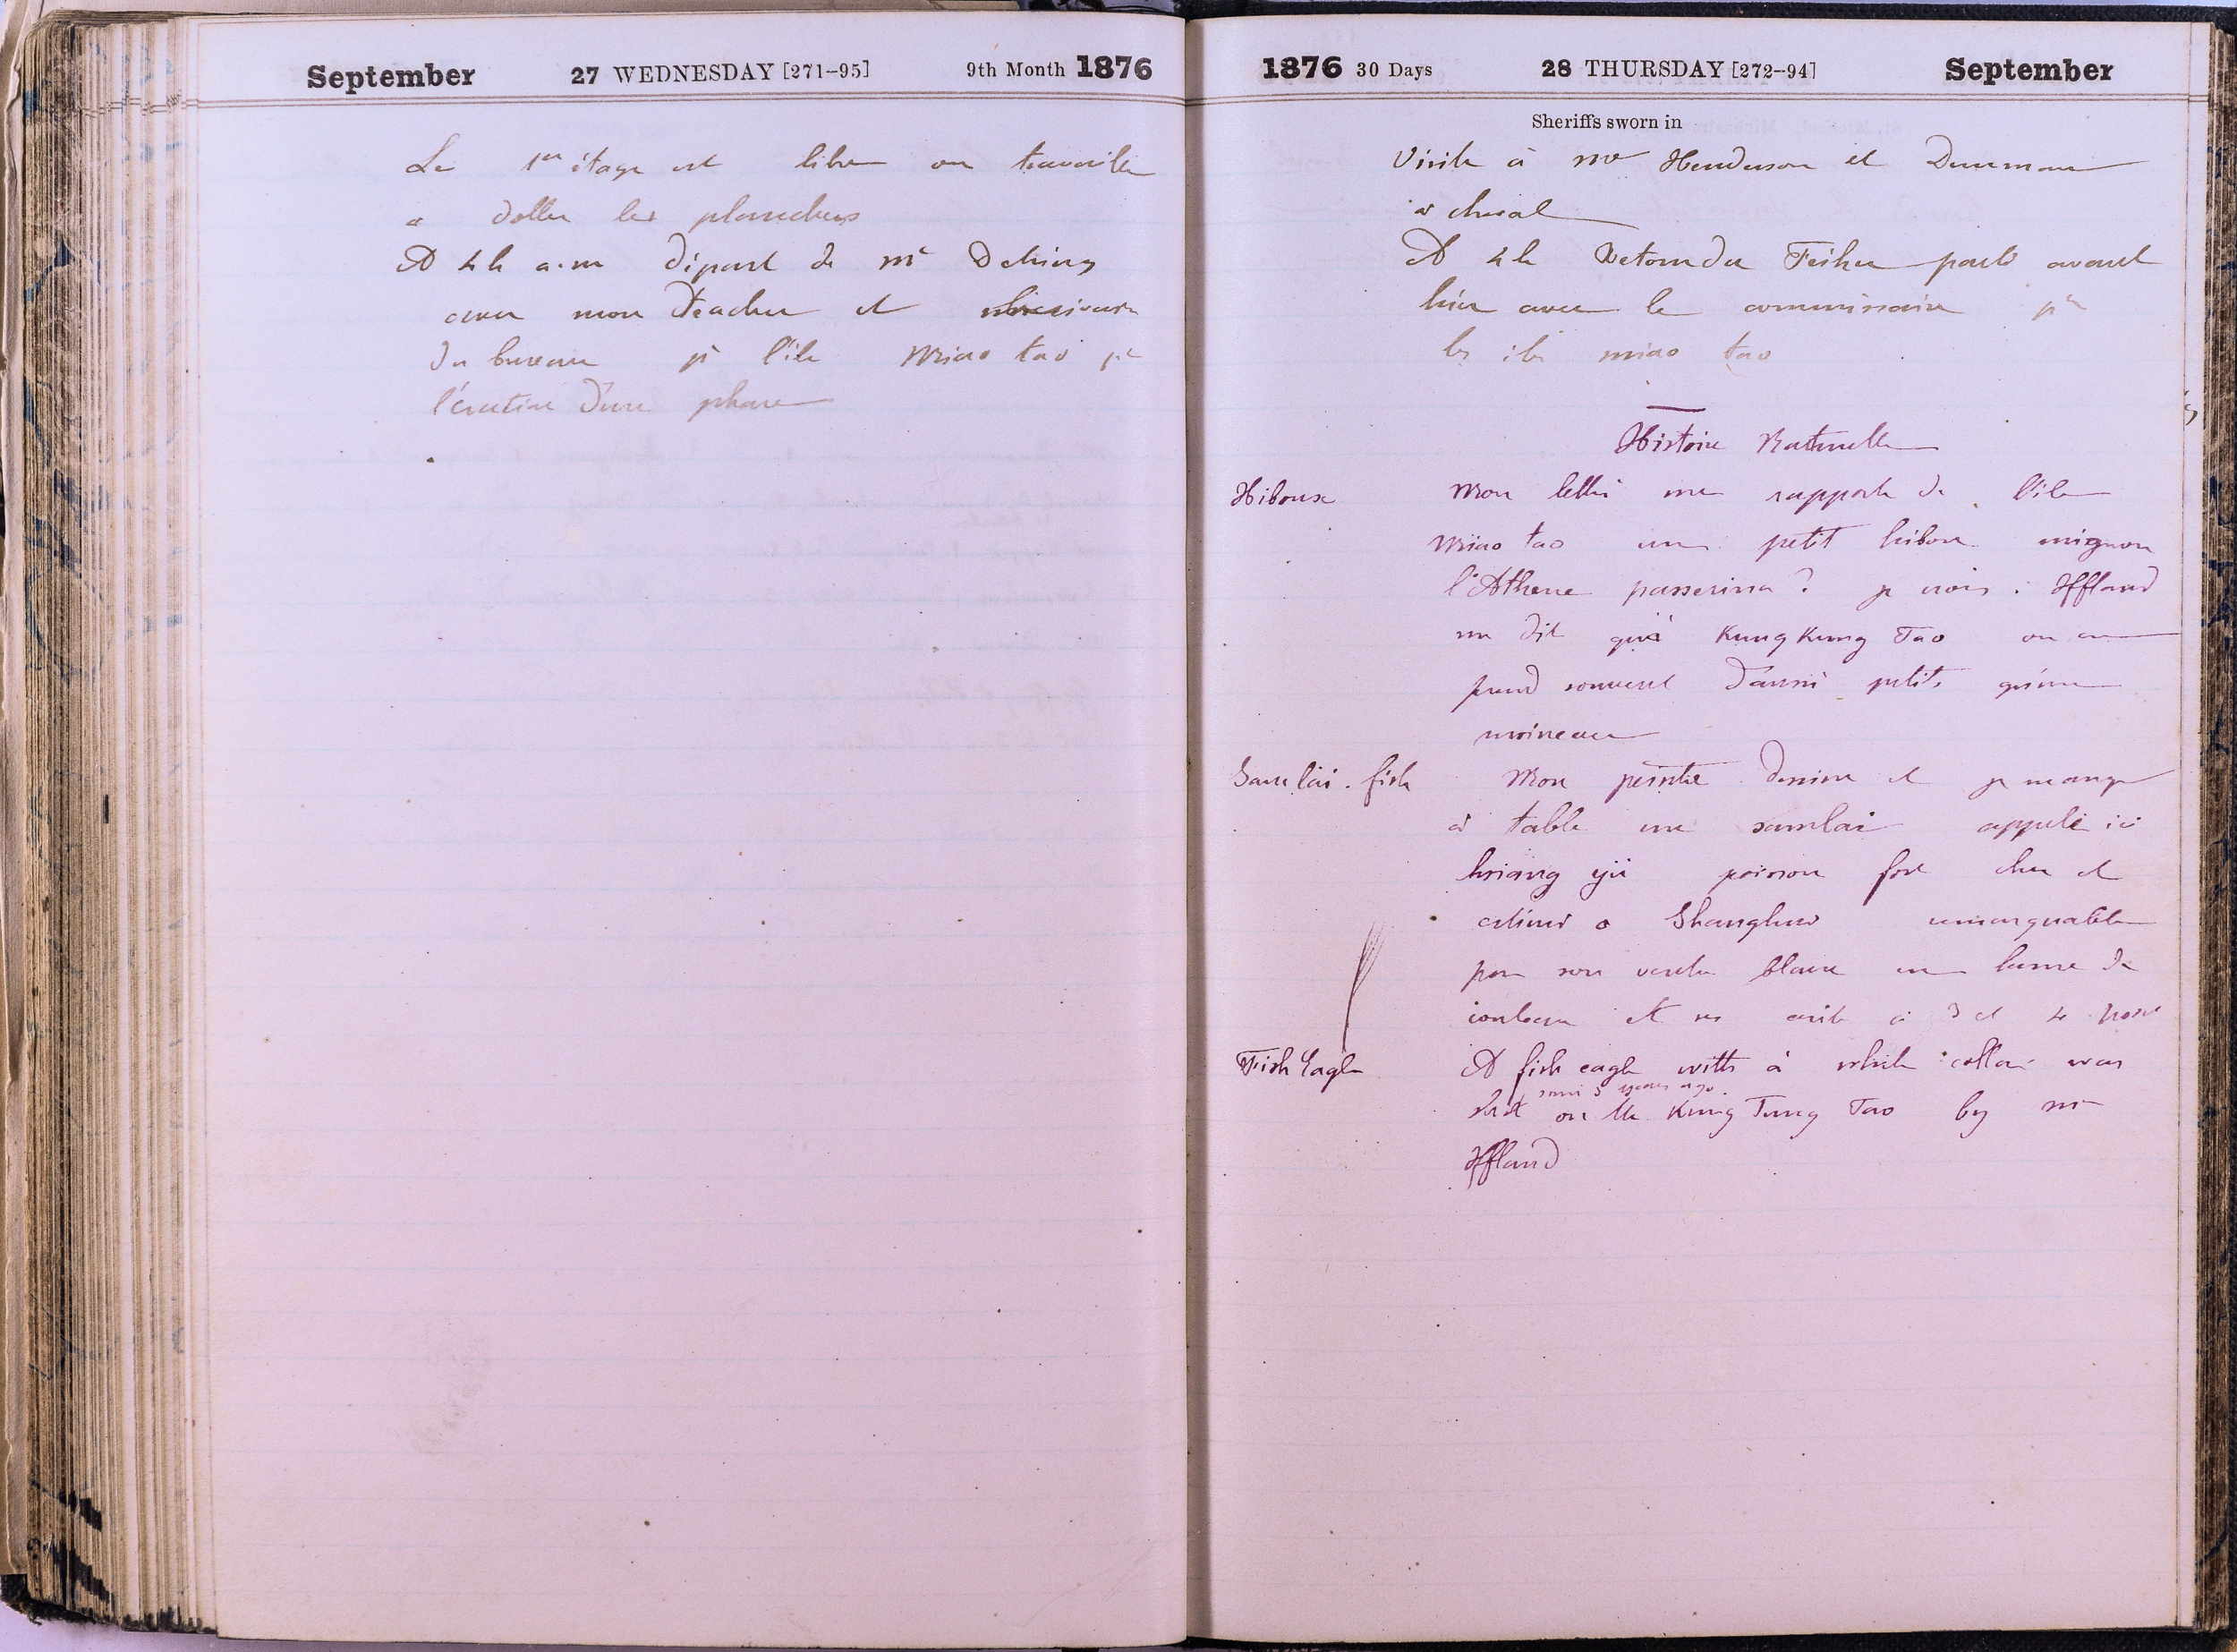 September 27 WEDNESDAY [271–95] 9th Month 1876
Le 1er étage est libre on travaille
a doller les planchers
A 4h a.m départ de Mr Detring
avec mon teacher et
du bureau pr l'ile Miao tao pr
l'érection d'une phare
1876 30 Days 28 THURSDAY [272–94] September
Sheriffs sworn in
Visite à Mr Henderson et Dunman
a cheval
A 4h Retour du Feihu parti avant
hier avec le commissaire pr
les iles miao tao
Histoire Naturelle
Hiboux Mon lettré me rapporte de l'ile
Miao tao un petit hibou mignon
l'Athene passerina? je crois : Iffland
me dit qu'à Kung Kung Tao on en
prend souvent d'aussi petits qu'un
moineau
Samlai . fish Mon peintre dessine et je mange
à table un samlai appelé ici
hsiang yü poisson fort cher et
estimé a Shanghai remarquable
par son ventre blanc en lame de
couteau et ses à 3 et 4
Fish Eagle A fish eagle with a white collar was
some 3 years ago
shot on the Kung Tung Tao by Mr
Iffland